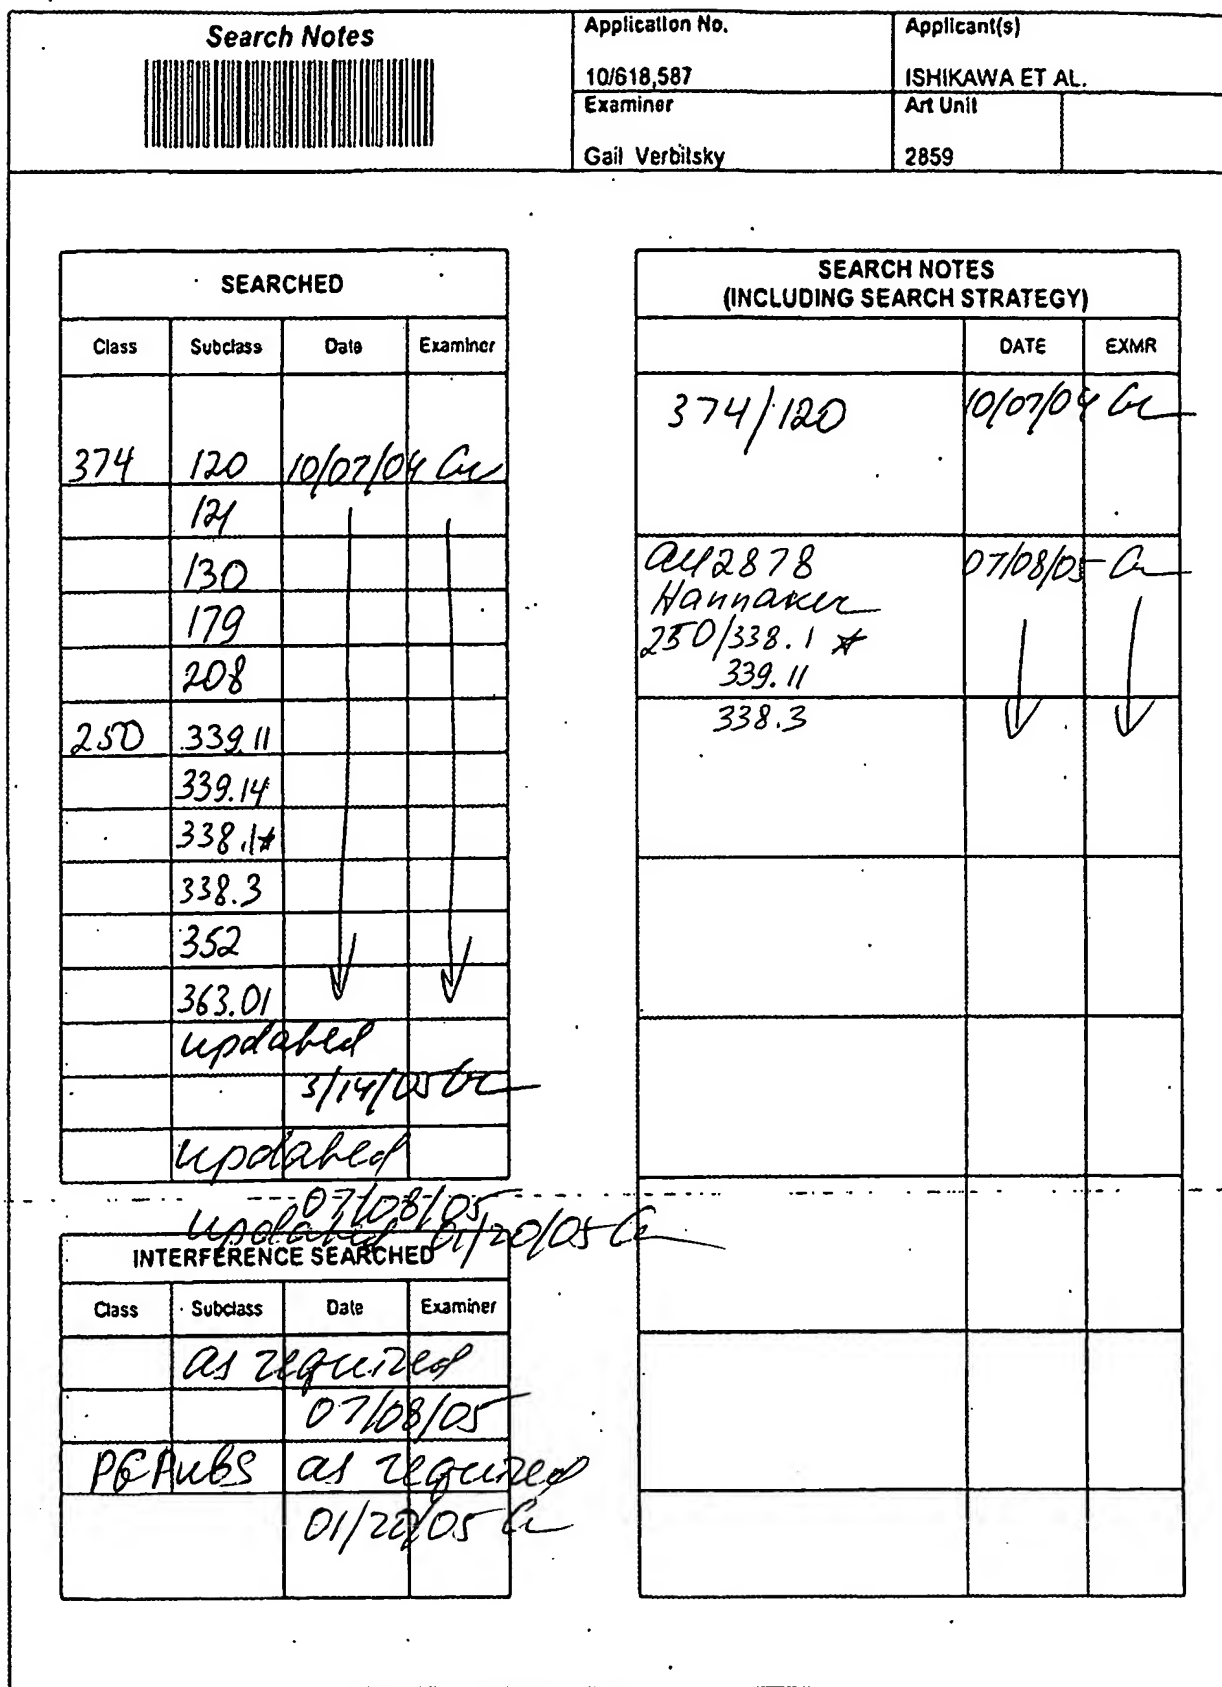 Search Notes
Application No.
10/618,587
Applicant(s)
ISHIKAWA ET AL.
Examiner
Gail Verbitsky
Art Unit
2859
SEARCHED
Class Subclass Date Examiner
374 120 10/07/04 Gv
121
130
179
208
250 339.11
339.14
338.1*
338.3
352
363.01
updated
3/14/05 Gv
updated
07/08/05
updated 01/20/05 Gv
INTERFERENCE SEARCHED
Class Subclass Date Examiner
as required
07/08/05
PGPubs as required
01/20/05 Gv
SEARCH NOTES
(INCLUDING SEARCH STRATEGY)
DATE EXMR
374/120 10/07/04 Gv
au 2878 07/08/05 Gv
250/338.1 *
339.11
338.3